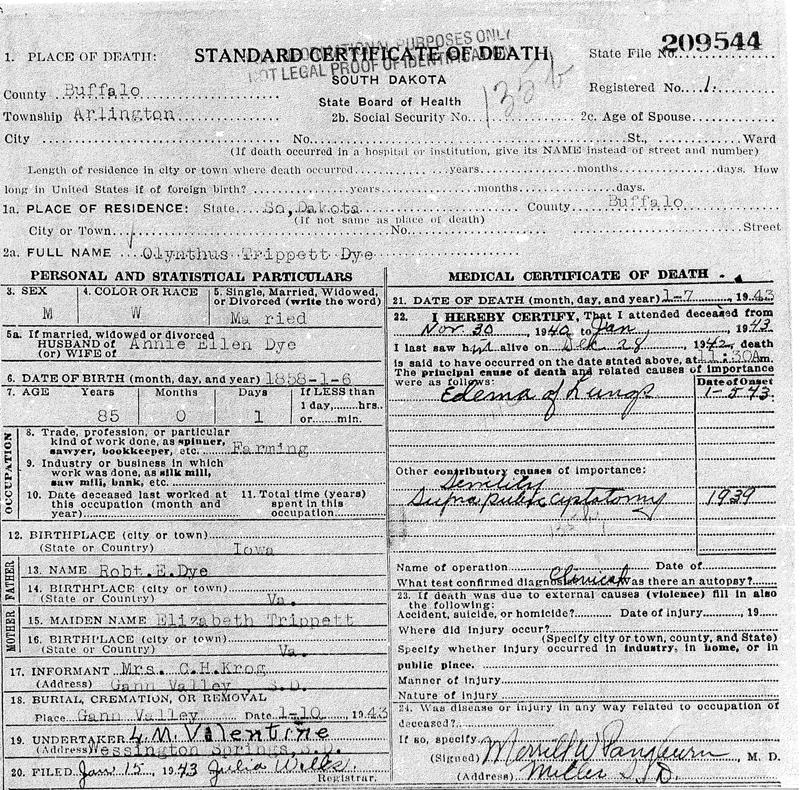 209544
INFORMATIONAL PURPOSES ONLY
NOT LEGAL PROOF OF IDENTIFICATION
1. PLACE OF DEATH: STANDARD CERTIFICATE OF DEATH State File No.
SOUTH DAKOTA
County Buffalo State Board of Health Registered No. 1.
135b
Township Arlington 2b. Social Security No. 2c. Age of Spouse
City No. St., Ward
(If death occurred in a hospital or institution, give its NAME instead of street and number)
Length of residence in city or town where death occurred years months days. How
long in United States if of foreign birth? years months days.
1a. PLACE OF RESIDENCE: State So, Dakota County Buffalo
(If not same as place of death)
City or Town No. Street
2a. FULL NAME Olynthus Trippett Dye
PERSONAL AND STATISTICAL PARTICULARS
3. SEX 4. COLOR OR RACE 5. Single, Married, Widowed,
or Divorced (write the word)
M W Ma ried
5a. If married, widowed or divorced
HUSBAND of Annie Ellen Dye
(or) WIFE of
6. DATE OF BIRTH (month, day, and year) 1858-1-6
7. AGE Years Months Days If LESS than
1 day, hrs.
85 0 1 or min.
OCCUPATION
8. Trade, profession, or particular
kind of work done, as spinner,
sawyer, bookkeeper, etc. Farming
9. Industry or business in which
work was done, as silk mill,
saw mill, bank, etc.
10. Date deceased last worked at 11. Total time (years)
this occupation (month and spent in this
year) occupation
12. BIRTHPLACE (city or town)
(State or Country) Iowa
FATHER
13. NAME Robt.E.Dye
14. BIRTHPLACE (city or town)
(State or Country) Va.
MOTHER
15. MAIDEN NAME Elizabeth Trippett
16. BIRTHPLACE (city or town)
(State or Country) Va.
17. INFORMANT Mrs. C.H.Krog
(Address) Gann Valley, S.D.
18. BURIAL, CREMATION, OR REMOVAL
Place Gann Valley Date 1-10, 1943
19. UNDERTAKER L.M. Valentine
(Address) Wessington Springs, S.D.
20. FILED Jan 15, 1943 Julia Registrar.
MEDICAL CERTIFICATE OF DEATH
21. DATE OF DEATH (month, day, and year) 1-7, 1943
22. I HEREBY CERTIFY, That I attended deceased from
Nov. 30 1940 to Jan, 1943
I last saw him alive on Dec 28 1942, death
is said to have occurred on the date stated above, at 11:30Am.
The principal cause of death and related causes of importance
were as follows: Date of Onset
Edema of Lungs 1-5-43
Other contributory causes of importance:
Senility
Suprapubic cystotomy 1939
Name of operation Date of
What test confirmed diagnosis Clinical Was there an autopsy?
23. If death was due to external causes (violence) fill in also
the following:
Accident, suicide, or homicide? Date of injury, 19
Where did injury occur?
(Specify city or town, county, and State)
Specify whether injury occurred in industry, in home, or in
public place.
Manner of injury
Nature of injury
24. Was disease or injury in any way related to occupation of
deceased?
If so, specify
(Signed) Merrill W Pangburn, M. D.
(Address) Miller S.D.